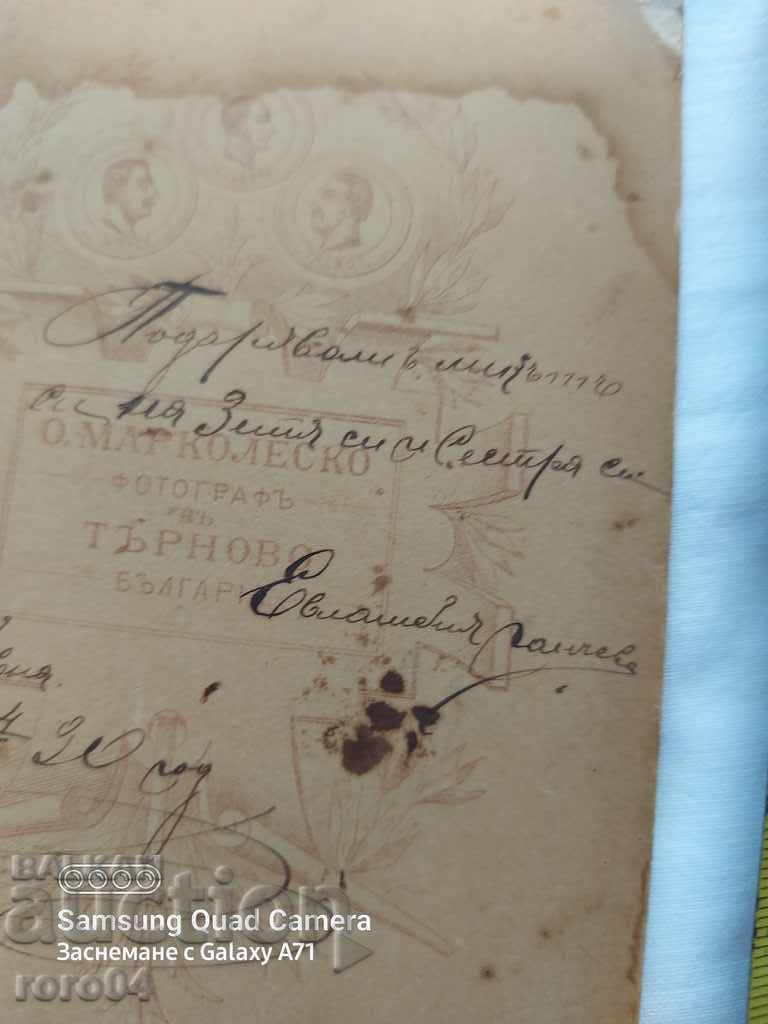 Подарявамъ ликътъ
си на Зетя си и Сестра си
О. МАРКОЛЕСКО
ФОТОГРАФЪ
ВЪ
ТЪРНОВО
БЪЛГАРИ
Евлампия Ганчева
30 год
БАЛКАН
auction
Samsung Quad Camera
Заснемане с Galaxy A71
roro04